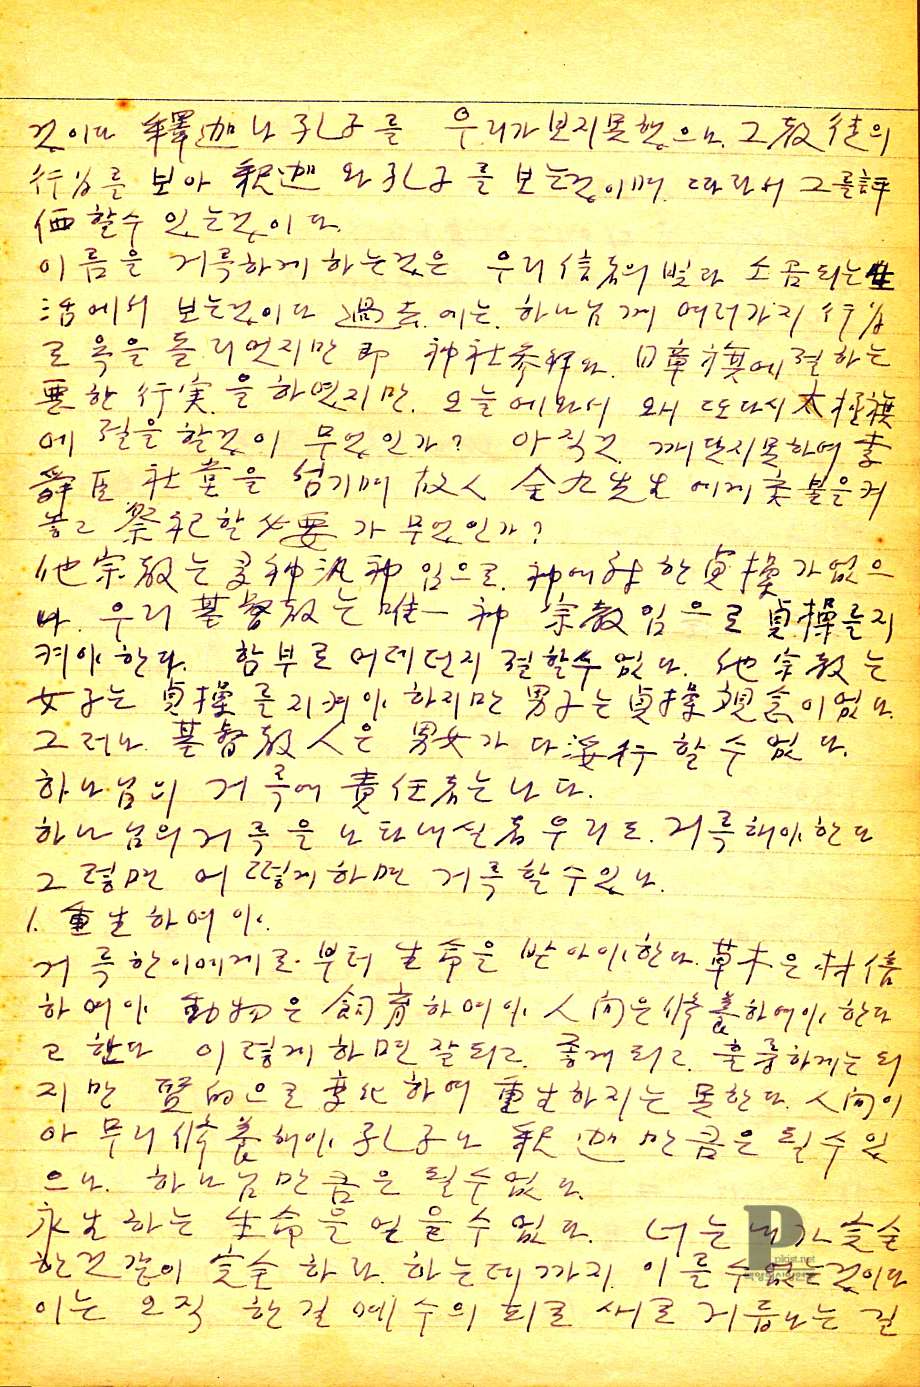 것이다 釋迦나 孔子를 우리가 보지 못했으나 그 敎徒의
行爲를 보아 釈迦와 孔子를 보는 것이며 따라서 그를 評
価할 수 있는 것이다.
이름을 거륵하게 하는 것은 우리 信者의 빛과 소곰되는 生
活에서 보는 것이다 過去에는 하나님께 여러가지 行爲
로 욕을 돌리었지만 即 神社參拜와 日章旗에 절하는
悪한 行実을 하였지만 오늘에 와서 왜 또다시 太極旗
에 절을 할 것이 무었인가? 아직것 깨닫지 못하여 李
舜臣 社堂을 섬기며 故人 金九先生에게 촛불을 켜
놓고 祭祀할 必要가 무었인가?
他宗敎는 多神汎神임으로 神에 対한 貞操가 없으
나 우리 基督敎는 唯一神 宗敎임으로 貞操를 지
켜야 한다. 함부로 어데던지 절할 수 없다. 他宗敎는
女子는 貞操를 지켜야 하지만 男子는 貞操観念이 없다.
그러나 基督敎人은 男女가 다 淫行할 수 없다.
하나님의 거륵에 責任者는 나다.
하나님의 거륵을 나타내실 者 우리도 거륵해야 한다
그렇면 어떻게 하면 거륵할 수 있나.
1. 重生하여야.
거륵한 이에게로부터 生命을 받아야 한다. 草木은 材倍
하여야 動物은 飼育하여야 人间은 修養하여야 한다
고 한다 이렇게 하면 잘되고 좋게 되고 훌륭하게는 되
지만 質的으로 変化하여 重生하지는 못한다. 人间이
아무리 修養해야 孔子나 釈迦만큼은 될 수 있
으나 하나님만큼은 될 수 없다.
永生하는 生命을 얻을 수 없다. 너는 내가 完全
한 것 같이 完全하라 하는데까지 이를 수 없는 것이다
이는 오직 한 길 예수의 피로 새로 거듭나는 길
plrist.net